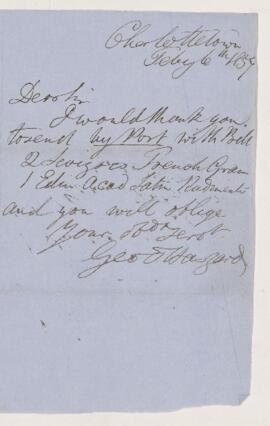 Charlottetown
Feby 6th 1857
Dear Sir
I would thank you
to send by Post with Bill
2 French Gram
1 Edin Acad Latin Rudiments
and you will oblige
Your Obdt Servt
Geo T Haszard